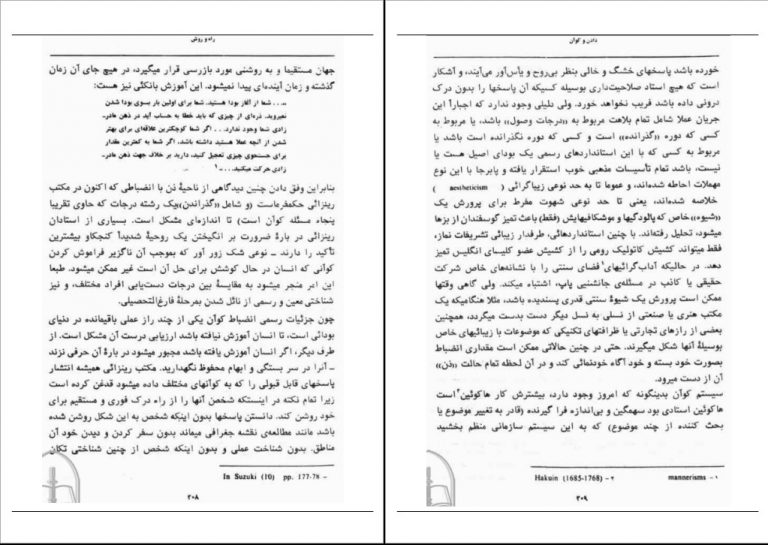 راه و روش
جهان مستقیما و به روشنی مورد بازرسی قرار میگیرد، در هیچ جای آن زمان
گذشته و زمان آینده‌ای پیدا نمیشود. این آموزش بانکئی نیز هست:
... شما از آغاز بودا هستید. شما برای اولین بار بسوی بودا شدن
نمیروید. ذره‌ای از چیزی که باید خطا به حساب آید در ذهن مادر-
زادی شما وجود ندارد... اگر شما کوچکترین علاقه‌ای برای بهتر
شدن از آنچه عملا هستید داشته باشد، اگر شما به کمترین مقدار
برای جستجوی چیزی تعجیل کنید، دارید بر خلاف جهت ذهن مادر-
زادی حرکت میکنید. - ۱
بنابراین وفق دادن چنین دیدگاهی از ناحیهٔ ذن با انضباطی که اکنون در مکتب
رینزائی حکمفرماست (و شامل «گذراندن» یک رشته درجات که حاوی تقریبا
پنجاه مسئله کوآن است) تا اندازه‌ای مشکل است. بسیاری از استادان
رینزائی در بارهٔ ضرورت بر انگیختن یک روحیهٔ شدیداً کنجکاو بیشترین
تأکید را دارند ـ نوعی شک زور آور که بموجب آن ناگزیر فراموش کردن
کوآنی که انسان در حال کوشش برای حل آن است غیر ممکن میشود. طبعا
این امر منجر میشود به مقایسهٔ بین درجات دست‌یابی افراد مختلف، و نیز
شناختی معین و رسمی از نائل شدن بمرحلهٔ فارغ‌التحصیلی.
چون جزئیات رسمی انضباط کوآن یکی از چند راز عملی باقیمانده در دنیای
بودائی است، تا انسان آموزش نیافته باشد ارزیابی درست آن مشکل است. از
طرف دیگر، اگر انسان آموزش یافته باشد مجبور میشود در بارهٔ آن حرفی نزند
ـ آنرا در سر بستگی و ابهام محفوظ نگهدارید. مکتب رینزائی همیشه انتشار
پاسخهای قابل قبولی را که به کوآنهای مختلف داده میشود قدغن کرده است
زیرا تمام نکته در اینستکه شخص آنها را از راه درک فوری و مستقیم برای
خود روشن کند. دانستن پاسخها بدون اینکه شخص به این شکل روشن شده
باشد مانند مطالعه‌ی نقشه جغرافی میماند بدون سفر کردن و دیدن خود آن
مناطق. بدون شناخت عملی و بدون اینکه شخص از چنین شناختی تکان
In Suzuki (10) pp. 177-78 -
۲۰۸
دادن و کوآن
خورده باشد پاسخهای خشگ و خالی بنظر بی‌روح و یأس‌آور می‌آیند، و آشکار
است که هیچ استاد صلاحیت‌داری بوسیله کسیکه آن پاسخها را بدون درک
درونی داده باشد فریب نخواهد خورد. ولی دلیلی وجود ندارد که اجباراً این
جریان عملا شامل تمام بلاهت مربوط به «درجات وصول» باشد، یا مربوط به
کسی که دوره «گذرانده» است و کسی که دوره نگذرانده است باشد یا
مربوط به کسی که با این استانداردهای رسمی یک بودای اصیل هست یا
نیست، باشد تمام تأسیسات مذهبی خوب استقرار یافته و پابرجا با این نوع
مهملات احاطه شده‌اند، و عموما تا به حد نوعی زیباگرائی ( aestheticism )
خلاصه شده‌اند، یعنی تا حد نوعی شهوت مفرط برای پرورش یک
«شیوه» خاص که پالودگیها و موشکافیهایش (فقط) باعث تمیز گوسفندان از بزها
میشود، تحلیل رفته‌اند. با چنین استانداردهائی، طرفدار زیبائی تشریفات نماز،
فقط میتواند کشیش کاتولیک رومی را از کشیش عضو کلیسای انگلیس تمیز
دهد. در حالیکه آداب‌گرائیهای۱ فضای سنتی را با نشانه‌های خاص شرکت
حقیقی یا کاذب در مسئله‌ی جانشینی پاپ، اشتباه میکند. ولی گاهی وقتها
ممکن است پرورش یک شیوهٔ سنتی قدری پسندیده باشد، مثلا هنگامیکه یک
مکتب هنری یا صنعتی از نسلی به نسل دیگر دست بدست میگردد، همچنین
بعضی از رازهای تجارتی یا ظرافتهای تکنیکی که موضوعات با زیبائیهای خاص
بوسیلهٔ آنها شکل میگیرند. حتی در چنین حالاتی ممکن است مقداری انضباط
بصورت خود بسته و خود آگاه خودنمائی کند و در آن لحظه تمام حالت «ذن»
آن از دست میرود.
سیستم کوآن بدینگونه که امروز وجود دارد، بیشترش کار هاکوئین۲ است
هاکوئین استادی بود سهمگین و بی‌اندازه فرا گیرنده (قادر به تغییر موضوع یا
بحث کننده از چند موضوع) که به این سیستم سازمانی منظم بخشید
۱ - mannerisms
۲ - Hakuin (1685-1768)
۲۰۹